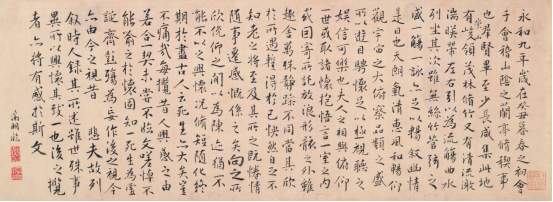 永和九年歲在癸丑暮春之初會
于會稽山陰之蘭亭脩稧事
也羣賢畢至少長咸集此地
有崇山峻領茂林脩竹又有清流激
湍暎帶左右引以為流觴曲水
列坐其次雖無絲竹管弦之
盛一觴一詠亦足以暢敘幽情
是日也天朗氣清惠風和暢仰
觀宇宙之大俯察品類之盛
所以遊目騁懷足以極視聽之
娛信可樂也夫人之相與俯仰
一世或取諸懷抱悟言一室之內
或因寄所託放浪形骸之外雖
趣舍萬殊靜躁不同當其欣
於所遇暫得於己快然自足不
知老之將至及其所之既惓情
隨事遷感慨係之矣向之所
欣俛仰之間以為陳迹猶不
能不以之興懷況脩短隨化終
期於盡古人云死生亦大矣豈
不痛哉每攬昔人興感之由
若合一契未嘗不臨文嗟悼不
能喻之於懷固知一死生為虛
誕齊彭殤為妄作後之視今
亦由今之視昔 悲夫故列
敘時人錄其所述雖世殊事
異所以興懷其致一也後之攬
者亦將有感於斯文